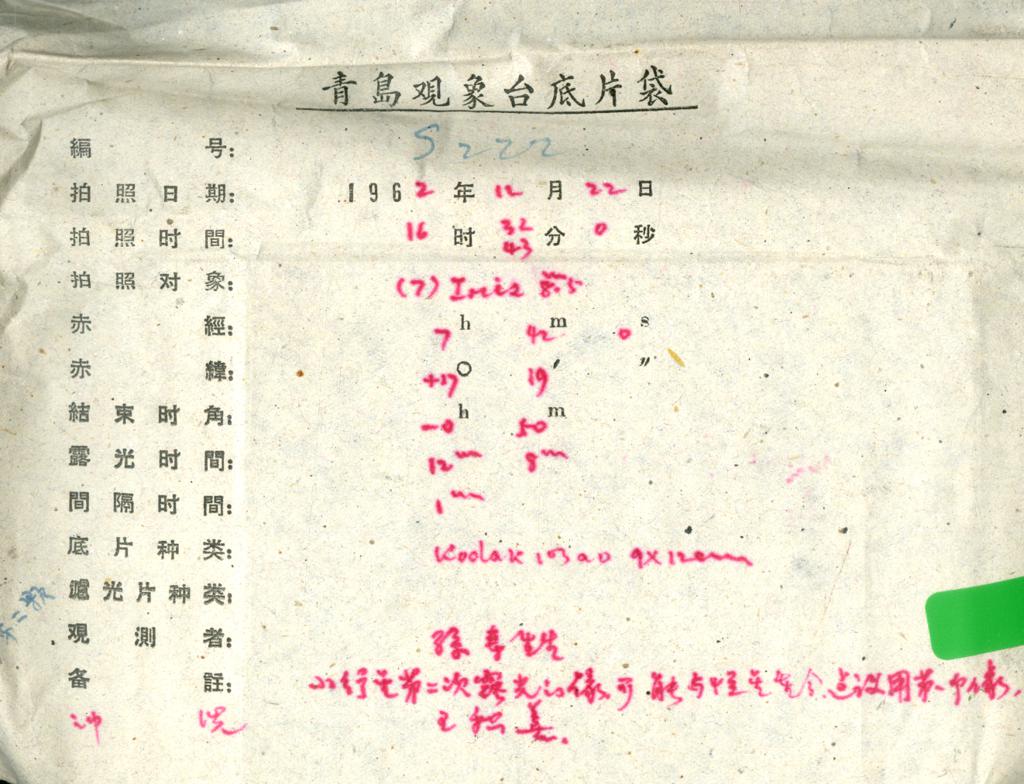 青島观象台底片袋
編号: S222
拍照日期: 1962年12月22日
拍照时間: 16时 32 43 分 0秒
拍照对象: (7) Iris 8.5m
赤經: 7h 42m 0s
赤緯: +17° 19′ ″
結束时角: -0h 50m
露光时間: 12m 8m
間隔时間: 1m
底片种类: Kodak 103aO 9x12cm
濾光片种类:
观測者: 孫寿
备註: 小行星第二次露光的像可能与恒星 建议用第一个像.
冲洗 王